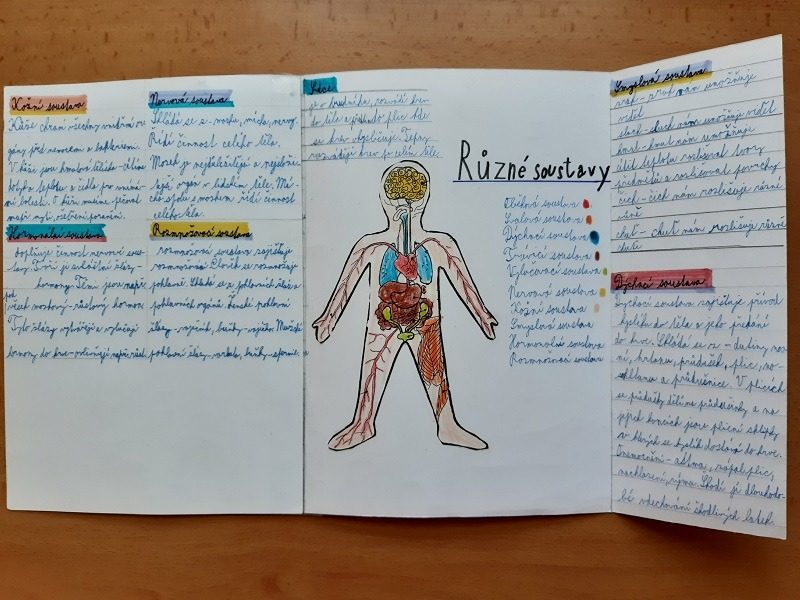 Kožní soustava
Kůže chrání všechny vnitřní or-
gány před
V kůži jsou hmatová tělíska - čidlo
dotyku, teplota a čidla pro vnímá-
ní bolesti. V kůži
mají
Nervová soustava
Skládá se z - mozku, míchy, nervy.
Řídí činnost celého těla.
Mozek je nejdůležitější a nejslož-
itější orgán v lidském těle. Mí-
cha spolu s mozkem řídí činnost
celého těla.
Hormonální soustava
doplňuje činnost nervové sous-
tavy. Tvoří je zvláštní žlázy -
hormony. Těmi jsou např.
růstový hormon.
Tyto žlázy vytvářejí a vylučují
hormony do krve
Rozmnožovací soustava
rozmnožovací soustava zajišťuje
rozmnožování. Člověk se rozmnožuje
pohlavně. Skládá se z pohlavních žláz a
pohlavních orgánů. Ženské pohlavní
žlázy - vaječník, buňky - vajíčko. Mužské
pohlavní žlázy - varlata, buňky - spermie
Srdce
je v hrudníku, rozvádí krev
do těla a přivádí do plic kde
se krev okysličuje. Tepny
rozvádějí krev po celém těle.
Různé soustavy
soustava
Svalová soustava
Dýchací soustava
Trávicí soustava
Vylučovací soustava
Nervová soustava
Kožní soustava
Smyslová soustava
Hormonální soustava
Rozmnožovací soustava
Smyslová soustava
zrak - zrak nám umožňuje
vidět
sluch - sluch nám umožňuje
hmat - hmat nám umožňuje
cítit teplotu rozlišovat tvary
předmětů a rozlišovat povrchy
čich - čich nám rozlišuje různé
vůně
chuť - chuť nám rozlišuje různé
chutě
Dýchací soustava
Dýchací soustava zajišťuje přívod
kyslíku do těla a jeho předání
do krve. Skládá se z - dutiny nos-
ní, hrtanu, průdušek, plic, no-
sohltanu a průdušnice. V plicích
se průdušky dělí na průdušinky a na
jejich koncích jsou plicní sklípky
v kterých se kyslík dostává do krve.
Onemocnění - astma, zápal plic,
nachlazení, rýma. Škodí jí dlouhodo-
bé vdechování škodlivých látek.